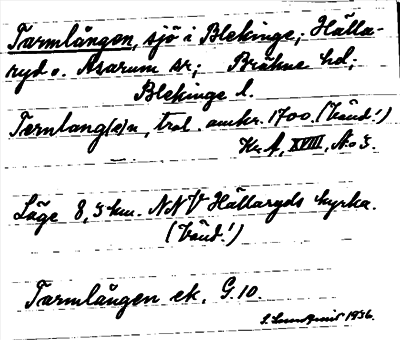 Tarmlången, sjö i Blekinge; Hälla-
ryd o. Asarum sr; Bräkne hd;
Blekinge l.
Ternlang(e)n, tral. omkr. 1700. (Vänd!)
Kr. A, XVIII, No 3.
Läge 8,5 km. NNV Hällaryds kyrka.
(Vänd!)
Tarmlången ek. G. 10.
1936.